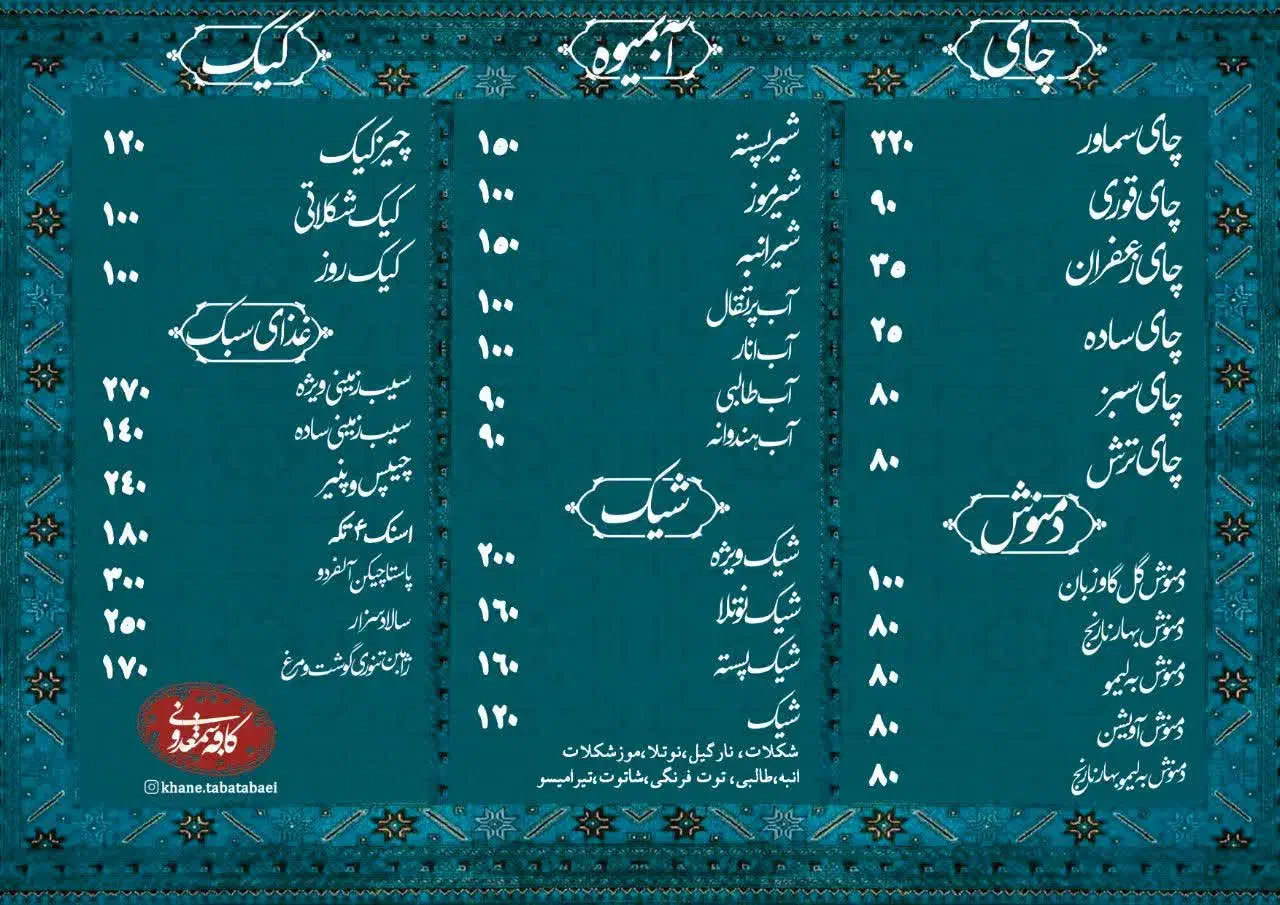 چای
چای سماور ۲۲۰
چای قوری ۹۰
چای زعفران ۳۵
چای ساده ۲۵
چای سبز ۸۰
چای ترش ۸۰
دمنوش
دمنوش گل گاوزبان ۱۰۰
دمنوش بهار نارنج ۸۰
دمنوش به لیمو ۸۰
دمنوش آویشن ۸۰
دمنوش به لیمو بهار نارنج ۸۰
آبمیوه
شیر پسته ۱۵۰
شیر موز ۱۰۰
شیر انبه ۱۵۰
آب پرتقال ۱۰۰
آب انار ۱۰۰
آب طالبی ۹۰
آب هندوانه ۹۰
شیک
شیک ویژه ۲۰۰
شیک نوتلا ۱۶۰
شیک پسته ۱۶۰
شیک ۱۲۰
شکلات، نارگیل،نوتلا،موزشکلات
انبه،طالبی، توت فرنگی،شاتوت،تیرامیسو
کیک
چیزکیک ۱۲۰
کیک شکلاتی ۱۰۰
کیک روز ۱۰۰
غذای سبک
سیب زمینی ویژه ۲۷۰
سیب زمینی ساده ۱۴۰
چیپس و پنیر ۲٤۰
اسنک ۴ تکه ۱۸۰
پاستا چیکن آلفردو ۳۰۰
سالاد سزار ۲۵۰
ژامبن تنوری گوشت و مرغ ۱۷۰
کافه شمعدونی
khane.tabatabaei